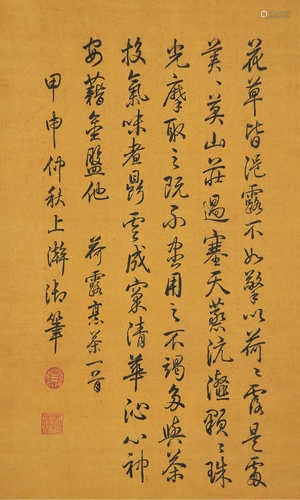 花草皆浥露不如擎以荷〻露是處
美莫山莊過塞天蒸沆瀣顆〻珠
光摩取之既不盡用之不竭多與茶
投氣味煮鼎雲成窠清華沁心神
安藉金盤他 荷露烹茶一首
甲申仲秋上澣御筆